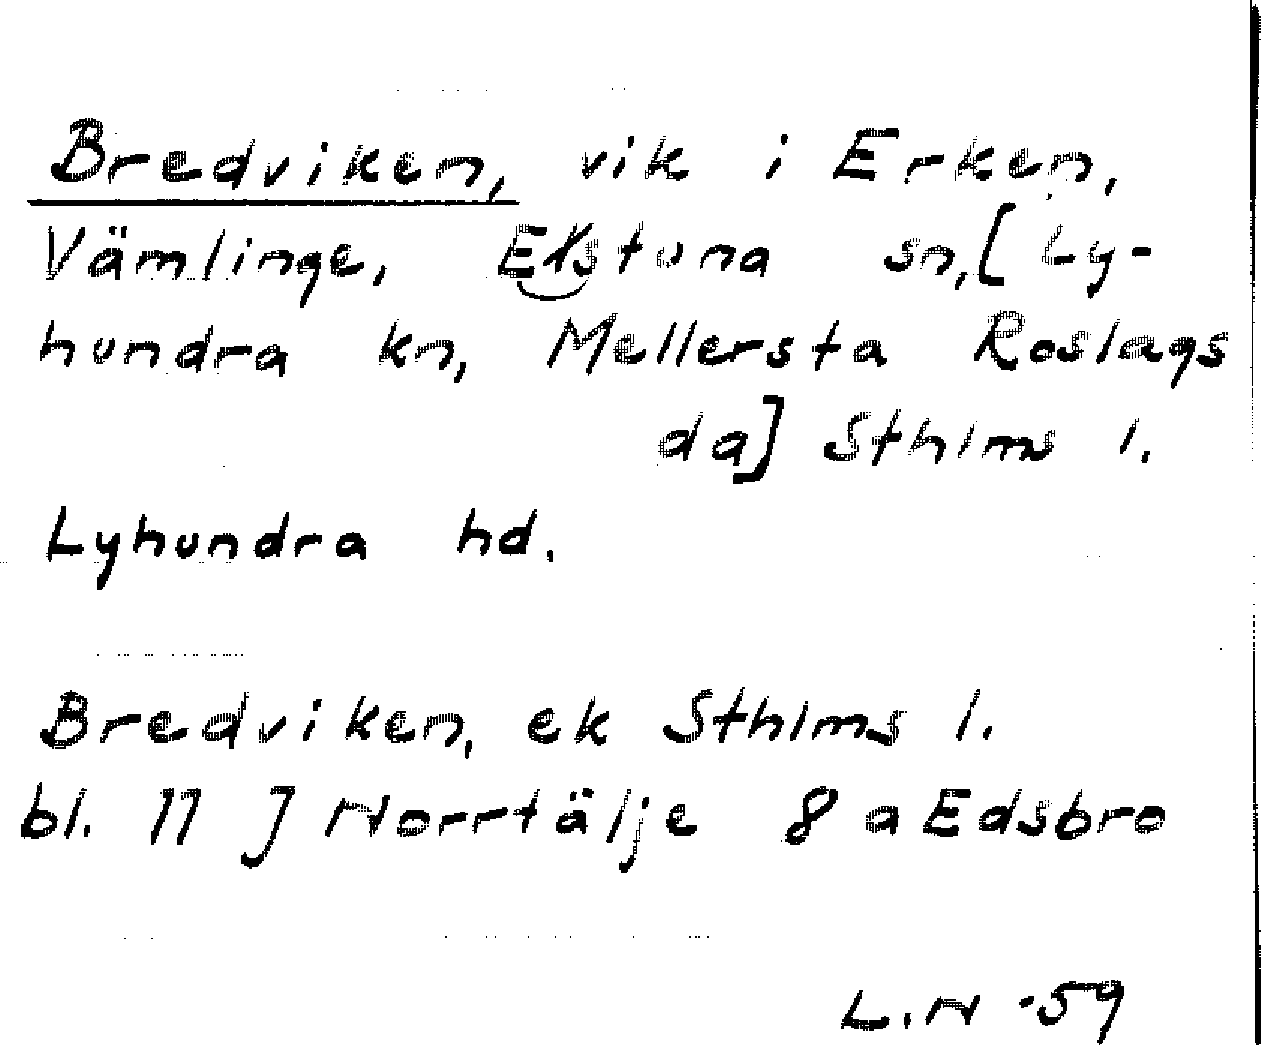 Bredviken, vik i Erken,
Vämlinge, Estuna sn, [Ly-
hundra kn, Mellersta Roslags
da] Sthlms l.
Lyhundra hd.
Bredviken, ek Sthlms l.
bl. 11 J Norrtälje 8 a Edsbro
L.N -59